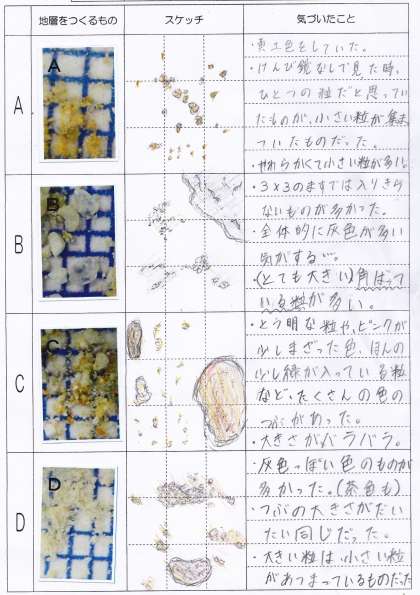 地層をつくるもの
スケッチ
気づいたこと
A
A
・黄土色をしていた。
・けんび鏡なしで見た時、
ひとつの粒だと思ってい
たものが、小さい粒が集まっ
ついたものだった。
・やわらかくて小さい粒が多い。
B
B
・3×3のますでは入りきら
ないものが多かった。
・全体的に灰色が多い
気がする…。
・(とても大きい)角ばって
いる粒が多い。
C
C
・とう明な粒や、ピンクが
少しまざった色、ほんの
少し緑が入っている粒
など、たくさんの色の
つぶがあった。
・大きさがバラバラ。
D
D
・灰色っぽい色のものが
多かった。(茶色も)
・つぶの大きさがだい
たい同じだった。
・大きい粒は、小さい粒
があつまっているものだった